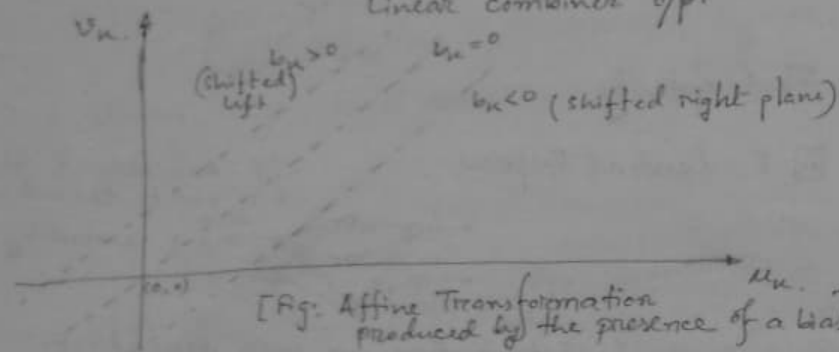 Linear combiner o/p.
vₖ.
bₖ>0
(shifted)
left
bₖ=0
bₖ<0 (shifted right plane)
(0,0)
uₖ.
[Fig: Affine Transformation
produced by the presence of a bias